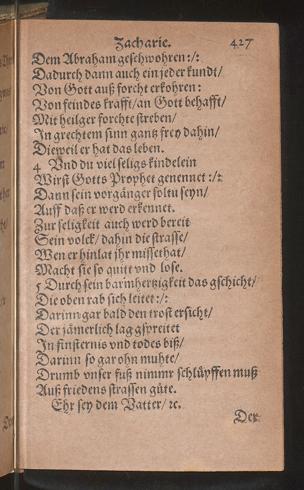 Zacharie. 427
Dem Abraham geschwohren :/:
Dadurch dann auch ein jeder kundt/
Von Gott auß forcht erkohren:
Von feindes krafft/ an Gott behafft/
Mit heilger forchte streben/
In grechtem sinn gantz frey dahin/
Dieweil er hat das leben.
4 Vnd du viel seligs kindelein
Wirst Gotts Prophet genennet :/:
Dann sein vorgänger soltu seyn/
Auff daß er werd erkennet.
Zur seligkeit auch werd bereit
Sein volck/ dahin die strasse/
Wen er hinlat ihr missethat/
Macht sie so quitt vnd lose.
5 Durch sein barmhertzigkeit das gschicht/
Die oben rab sich leitet :/:
Darinn gar bald den trost ersicht/
Der jämerlich lag gspreitet
In finsternis vnd todes biß/
Darinn so gar ohn muhte/
Drumb vnser fuß nimmr schlüpffen muß
Auß friedens strassen güte.
Ehr sey dem Vatter/ ꝛc.
Der